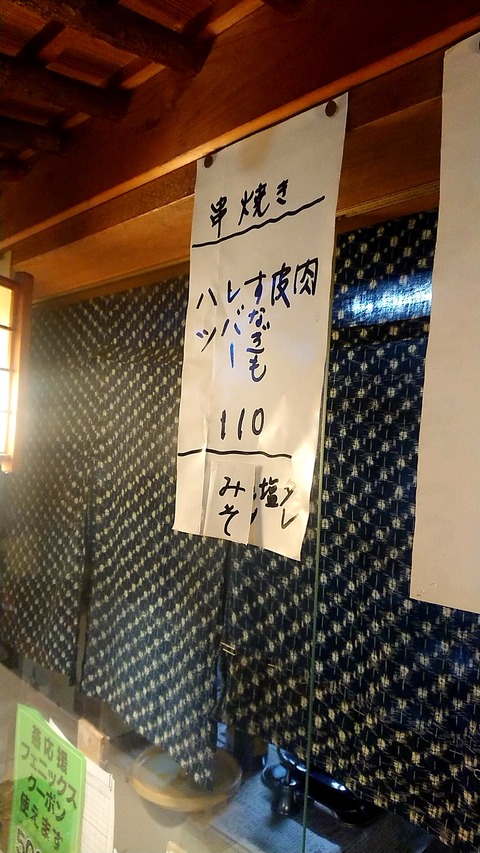 串焼き
肉
皮
すなぎも
レバー
ハツ
110
タレ
塩
みそ
応援
フェニックス
クーポン
使えます